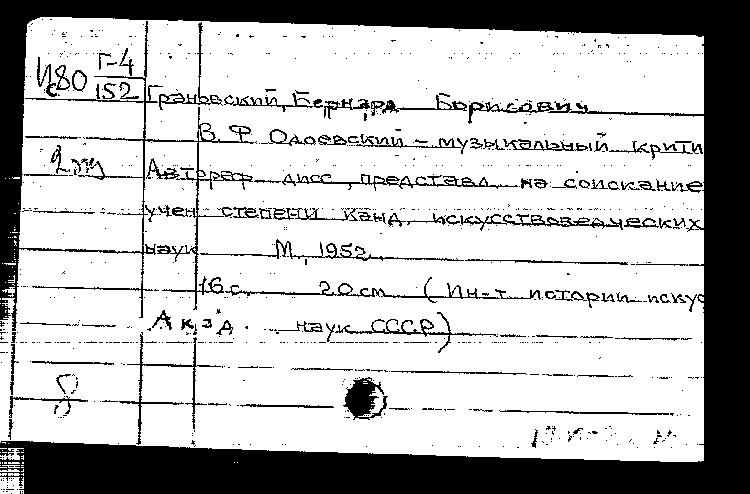 Г-4
Ис80 152
Грановский, Бернард Борисович
В. Ф. Одоевский - музыкальный крити
2 экз
Автореф. дисс., представл. на соискание
учен степени канд. искусствоведческих
наук М., 1952.
16 с. 20 см. (Ин-т истории искус
Акад. наук СССР)
8